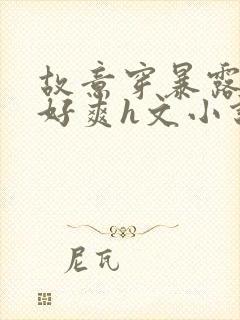 故意穿暴露
好爽h文小
尼瓦